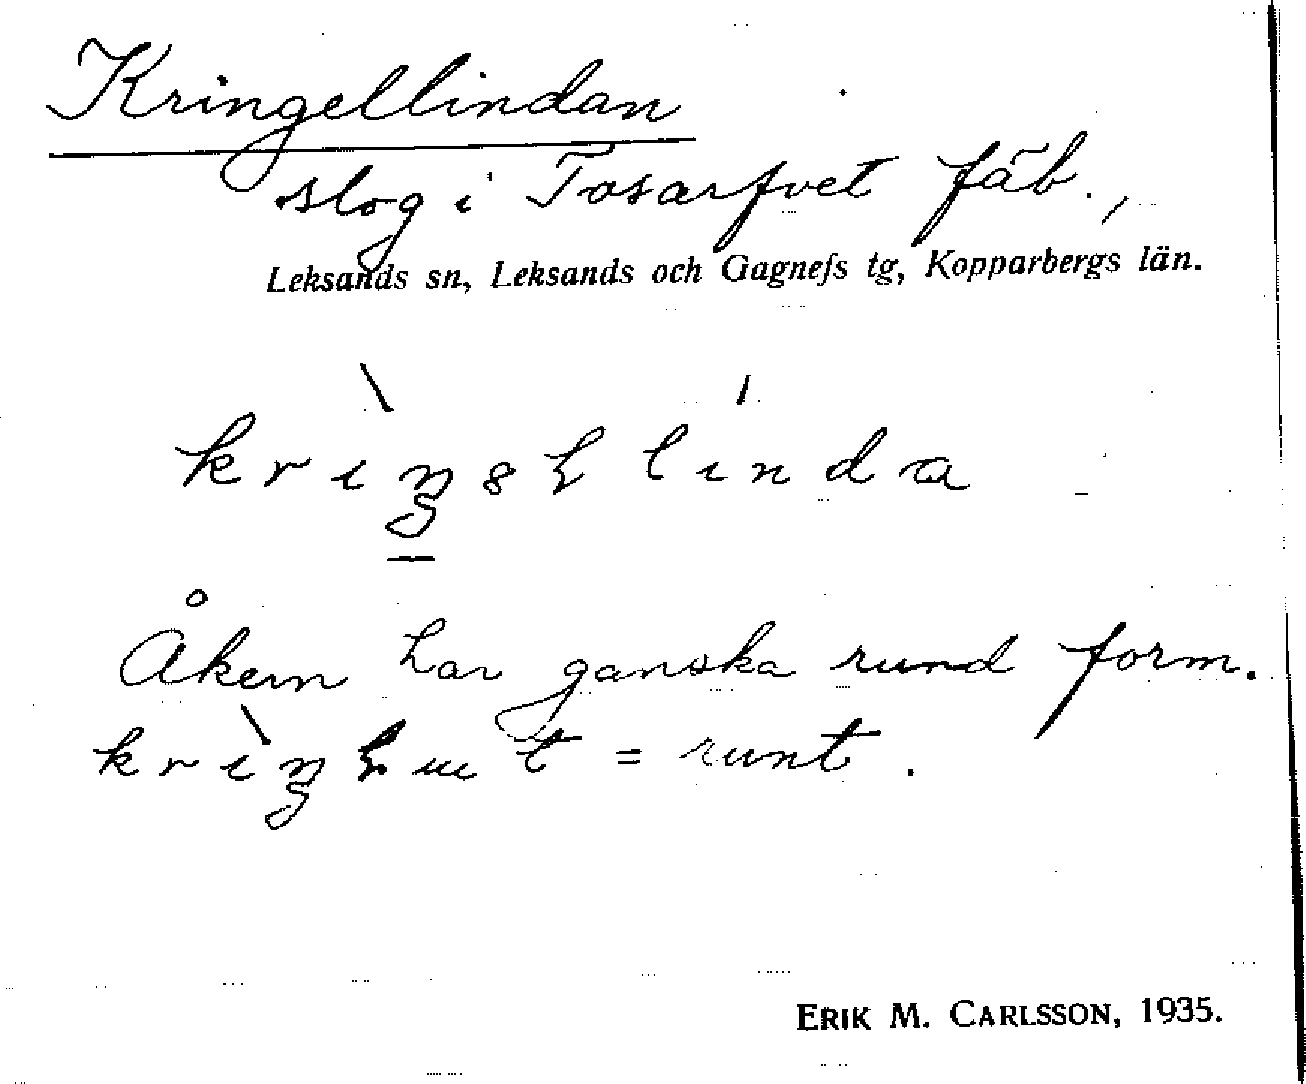 Kringellindan
slog i Tosarfvet fäb.,
Leksands sn, Leksands och Gagnefs tg, Kopparbergs län.
Åkern har ganska rund form.
= runt.
ERIK M. CARLSSON, 1935.